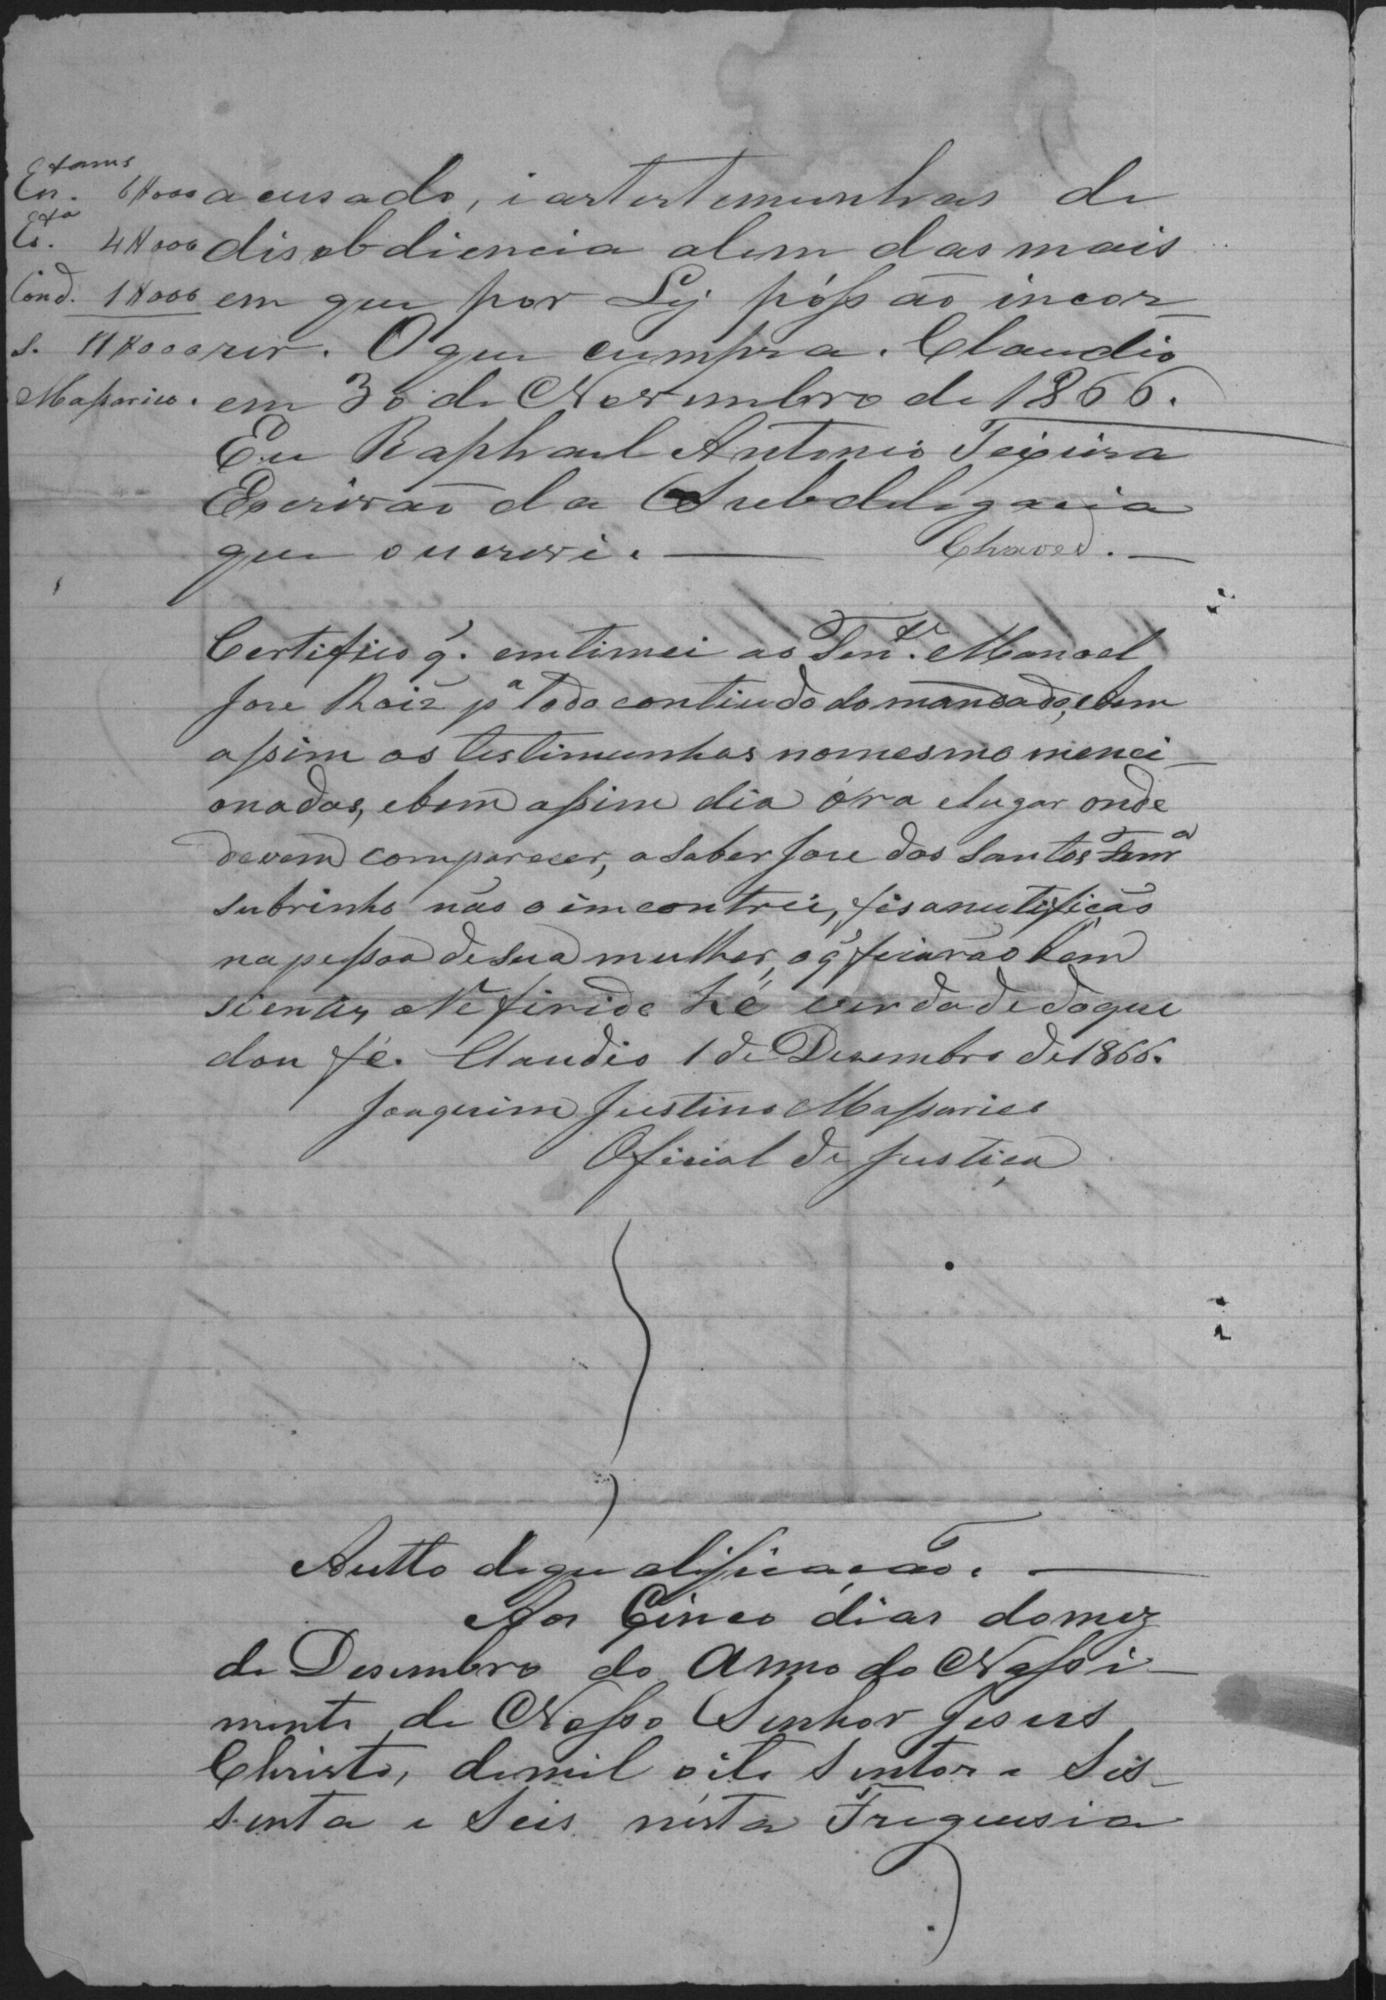 Cn. 6$000
Ct.ª 4$000
Cond. 1$000
S. 11$000
Massarico.
acusado, i as testemunhas de
disobdiencia alem das mais
em que por Ley póssão incor-
rer. O que cumpra. Claudio
em 30 de Novembro de 1866.
Eu Raphael Antonio Teixeira
Escrivão da Subdelegacia
que o escrevi. Chaves.
Certifico q'. emtimei ao Ten.te Manoel
Jose Roiz pª todo contiudo do mandado, ebem
assim as testimunhas nomesmo menci-
onadas, ebem assim dia óra elugar onde
devem comparecer, a saber Jose dos Santos
subrinho não o imcontrei, fis anutificação
napessoa desua mulher, o q' ficarão bem
sientes oReferido hé verdade doque
dou fé. Claudio 1 de Desembro de 1866.
Joaquim Justino Massarico
Oficial de Justiça
Autto dequalificação.
Aos Cinco dias domez
de Desembro do Anno do Nassi-
mento de Nosso Senhor Jesus
Christo, demil oito sentos e Ses-
senta e Seis nesta Freguesia